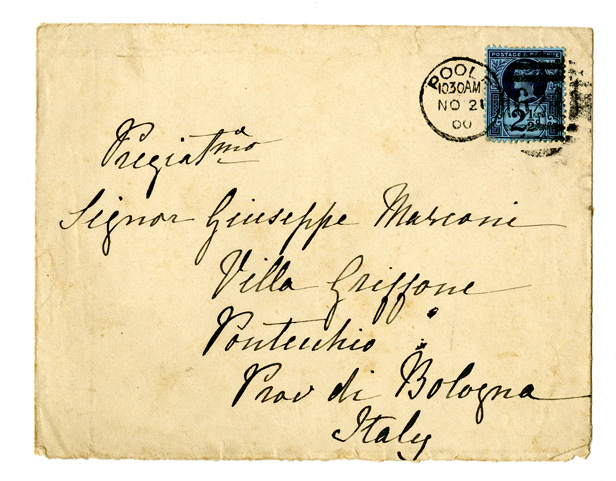 POOLE
10 30 AM
NO 21
00
POSTAGE & REVENUE
2½
Pregiatmo
Signor Giuseppe Marconi
Villa Griffone
Pontecchio
Prov di Bologna
Italy